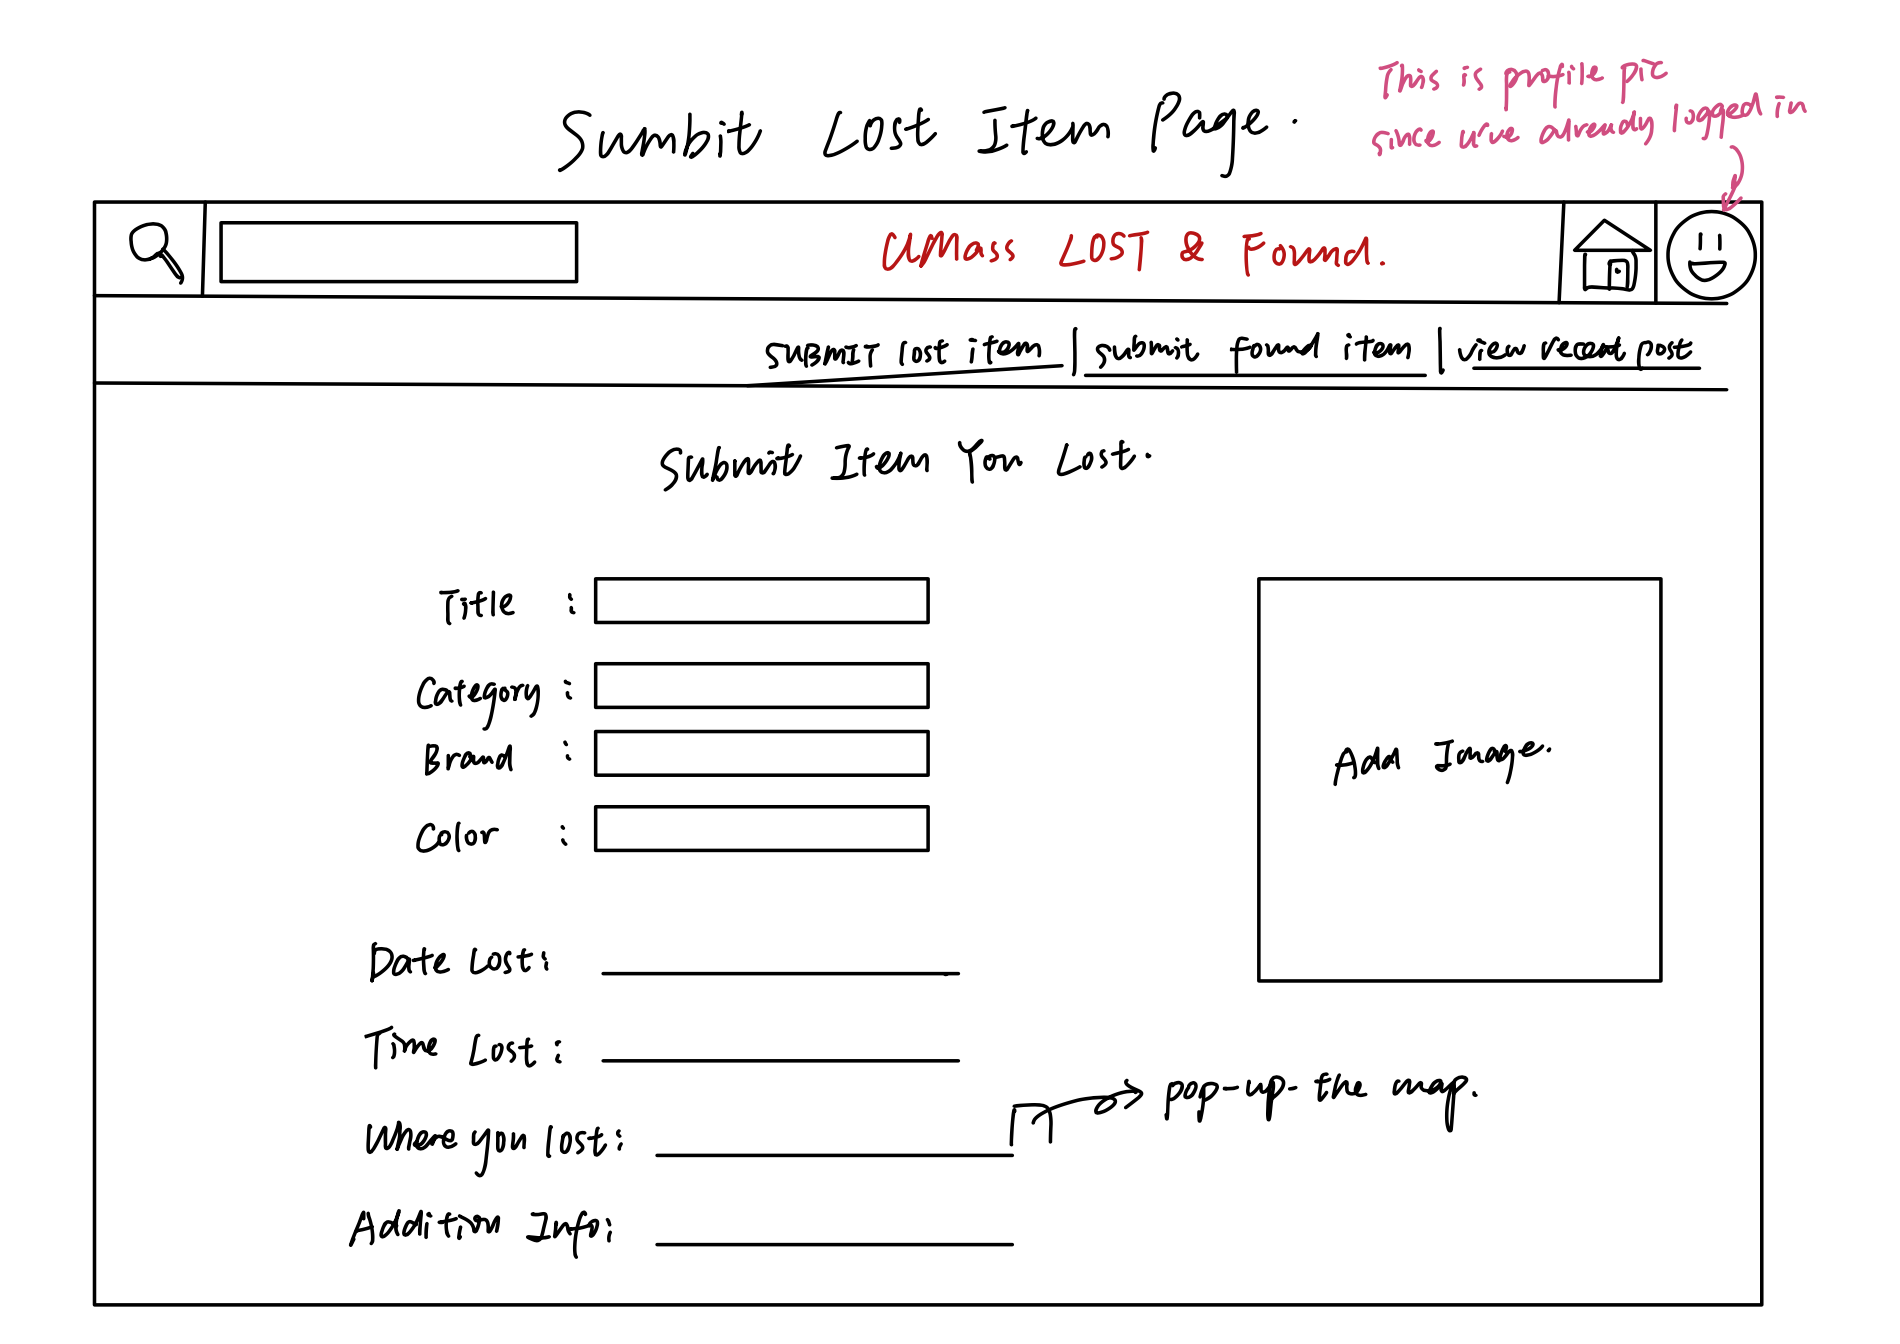 This is profile pic
since u've already logged in
Sumbit Lost Item Page.
UMass LOST & Found.
SUBMIT lost item | submit found item | view recent post
Submit Item You Lost.
Title :
Category :
Brand :
Color :
Add Image.
Date Lost:
Time Lost :
Where you lost:
pop-up- the map.
Addition Info: